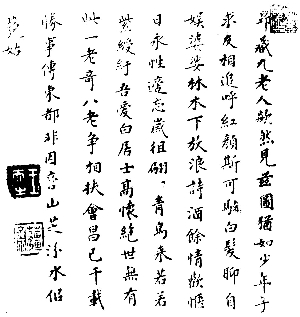 歲九老人歡然見茲圖猶如少年子
求友相追呼紅顏斯可駐白髮聊自
娛婆娑林木下放浪詩酒餘情歡惟
日永性適忘歲徂翩〻青鳥來若若
紫綬紆吾愛白居士高懷絕世無有
此一老哥八老爭相扶會昌已千載
勝事傳東都非因香山英水侶